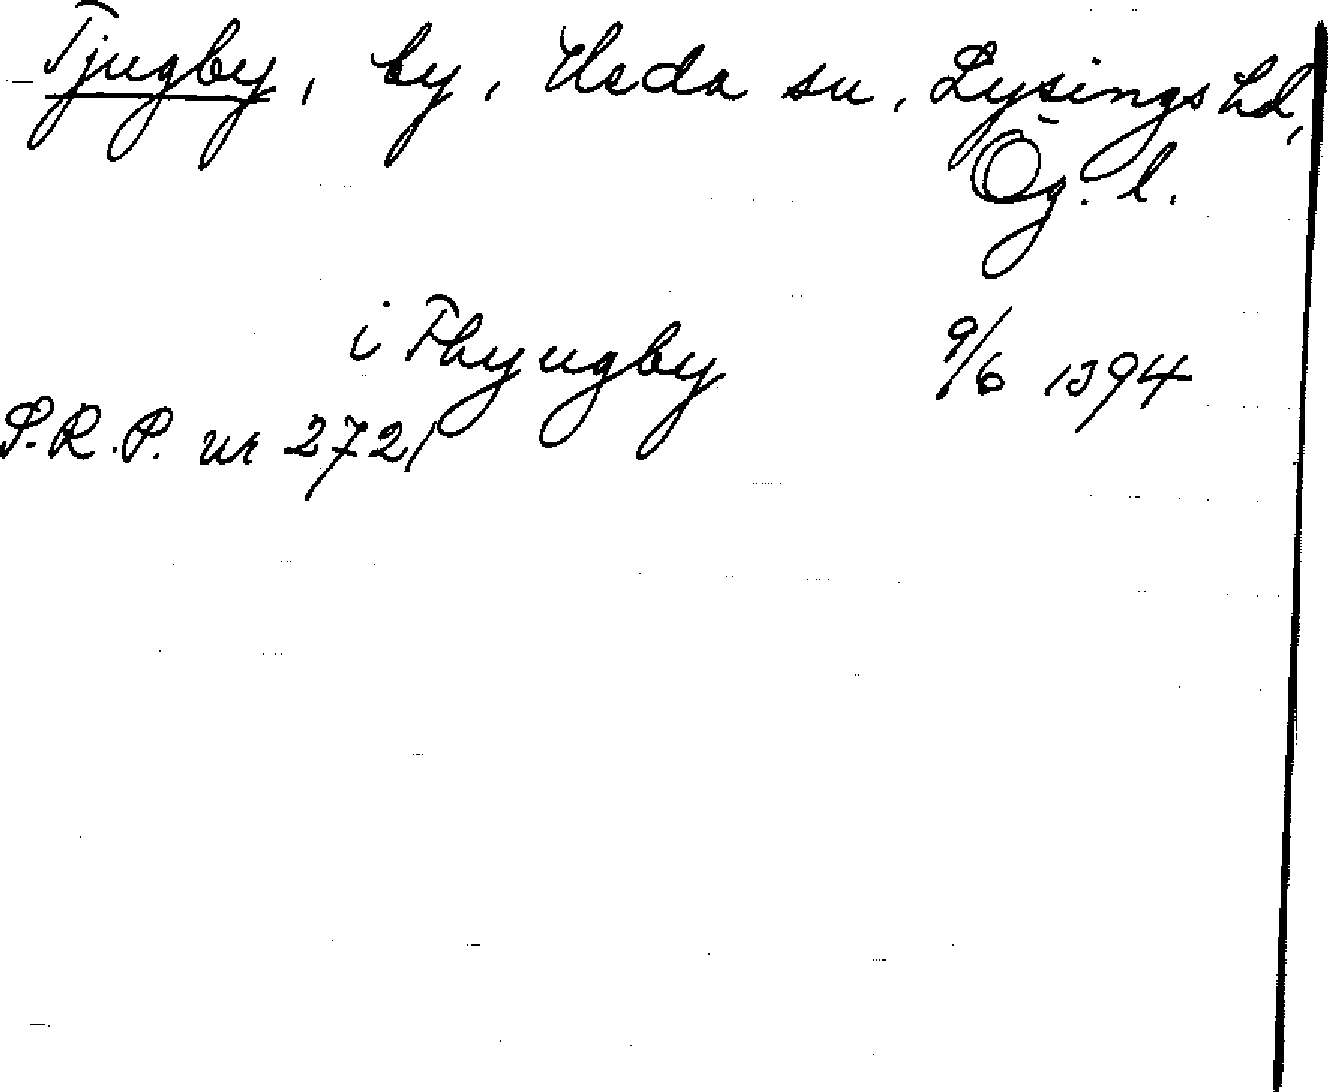 Tjugby, by, Heda sn, Lysings hd,
Ög. l.
i Thyugby 9/6 1394
S.R.P. nr 2721